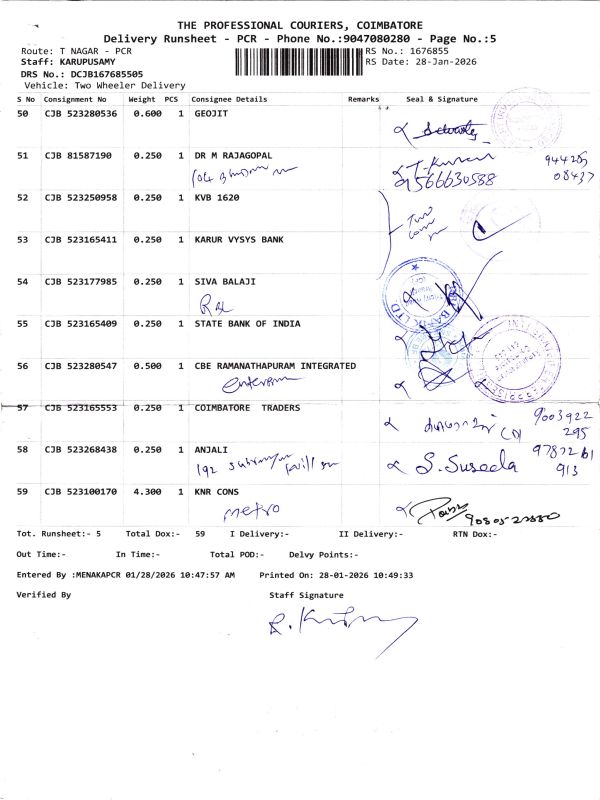 THE PROFESSIONAL COURIERS, COIMBATORE
Delivery Runsheet - PCR - Phone No.:9047080280 - Page No.:5
Route: T NAGAR - PCR
RS No.: 1676855
Staff: KARUPUSAMY
RS Date: 28-Jan-2026
DRS No.: DCJB167685505
Vehicle: Two Wheeler Delivery
S No Consignment No Weight PCS Consignee Details Remarks Seal & Signature
50 CJB 523280536 0.600 1 GEOJIT
51 CJB 81587190 0.250 1 DR M RAJAGOPAL
T. Kumar 944285
9566630588 08437
52 CJB 523250958 0.250 1 KVB 1620
53 CJB 523165411 0.250 1 KARUR VYSYS BANK
54 CJB 523177985 0.250 1 SIVA BALAJI
55 CJB 523165409 0.250 1 STATE BANK OF INDIA
56 CJB 523280547 0.500 1 CBE RAMANATHAPURAM INTEGRATED
57 CJB 523165553 0.250 1 COIMBATORE TRADERS
9003922
295
58 CJB 523268438 0.250 1 ANJALI
192
S. Suseela 9787261
913
59 CJB 523100170 4.300 1 KNR CONS
metro
Tot. Runsheet:- 5 Total Dox:- 59 I Delivery:- II Delivery:- RTN Dox:-
Out Time:- In Time:- Total POD:- Delvy Points:-
Entered By :MENAKAPCR 01/28/2026 10:47:57 AM Printed On: 28-01-2026 10:49:33
Verified By Staff Signature